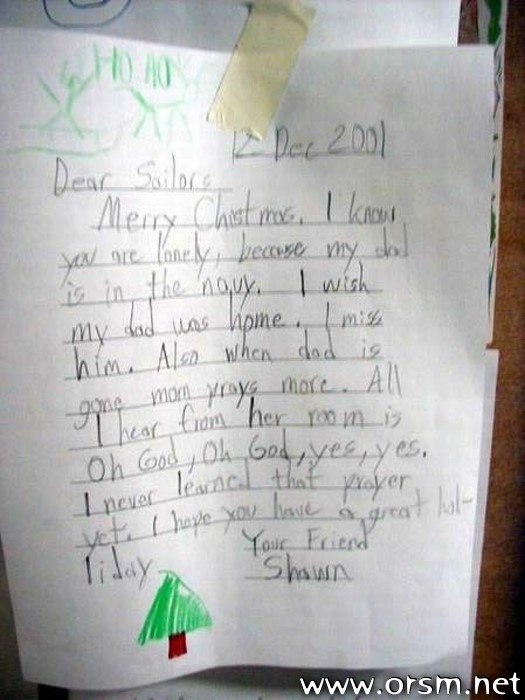 HO HO
12 Dec 2001
Dear Sailors
Merry Chistmas. I know
you are lonely, because my dad
is in the navy. I wish
my dad was home. I miss
him. Also when dad is
gone mom prays more. All
I hear from her room is
Oh God, Oh God, yes, yes.
I never learned that prayer
yet. I hope you have a great hol-
liday
Your Friend
Shawn
www.orsm.net